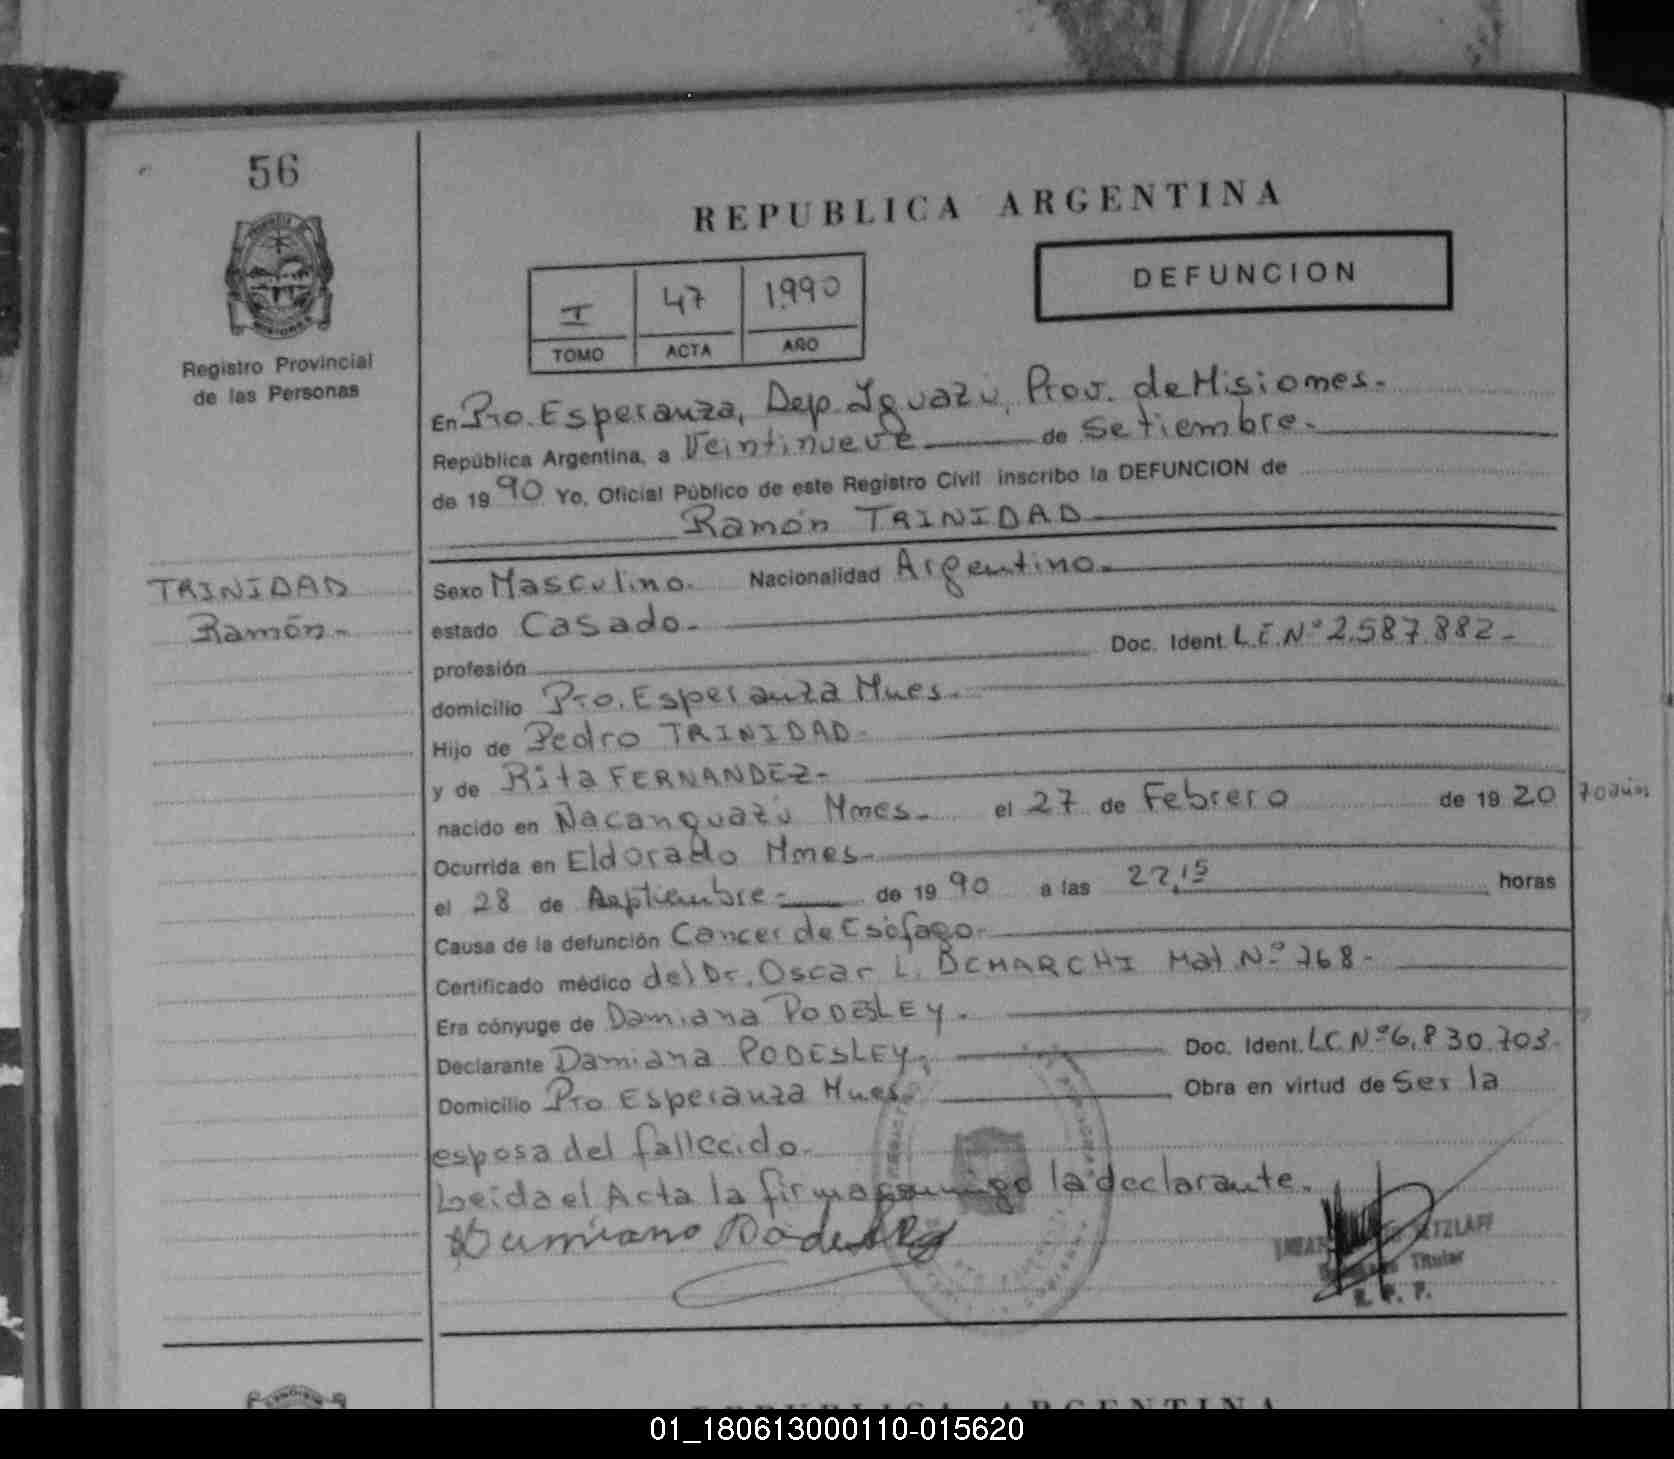 56
REPUBLICA ARGENTINA
DEFUNCION
I 47 1990
TOMO ACTA AÑO
Registro Provincial
de las Personas
En Pto. Esperanza, Dep. Iguazú, Prov. de Misiones.
República Argentina, a Veintinueve de Setiembre.
de 1990 Yo, Oficial Público de este Registro Civil inscribo la DEFUNCION de
Ramón TRINIDAD
TRINIDAD
Ramón.-
Sexo Masculino. Nacionalidad Argentino.
estado Casado.-
profesión Doc. Ident. L.E. Nº 2.587.882.-
domicilio Pto. Esperanza Mnes.
Hijo de Pedro TRINIDAD.
y de Rita FERNANDEZ.-
nacido en Ñacanguazú Mnes.- el 27 de Febrero de 1920 70 años
Ocurrida en Eldorado Mnes.-
el 28 de Septiembre.- de 1990 a las 22,15 horas
Causa de la defunción Cancer de Esófago.-
Certificado médico del Dr. Oscar L. DEMARCHI Mat. Nº 768.-
Era cónyuge de Damiana PODESLEY.
Declarante Damiana PODESLEY. Doc. Ident. LC. Nº 6.830.703.
Domicilio Pto Esperanza Mnes. Obra en virtud de Ser la
esposa del fallecido.
Leida el Acta la firma conmigo la declarante.
Titular
R. P. P.
REPUBLICA ARGENTINA
01_180613000110-015620